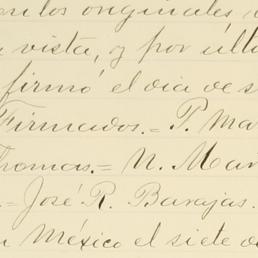 en los originales
vista, y por últ
firmó el día de s
Firmados.= P. Ma
Thomas.= N. Mar
.= José R. Barajas.
México el siete d